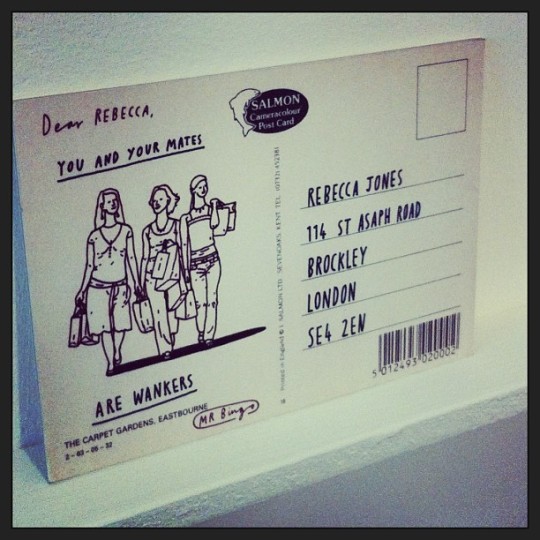 Dear REBECCA,
YOU AND YOUR MATES
ARE WANKERS
THE CARPET GARDENS, EASTBOURNE
2-83-05-52
MR Bingo
SALMON
Cameracolour
Post Card
Printed in England © J. SALMON LTD. SEVENOAKS, KENT. TEL. (0732) 452381
REBECCA JONES
114 ST ASAPH ROAD
BROCKLEY
LONDON
SE4 2EN
5 012493 020002